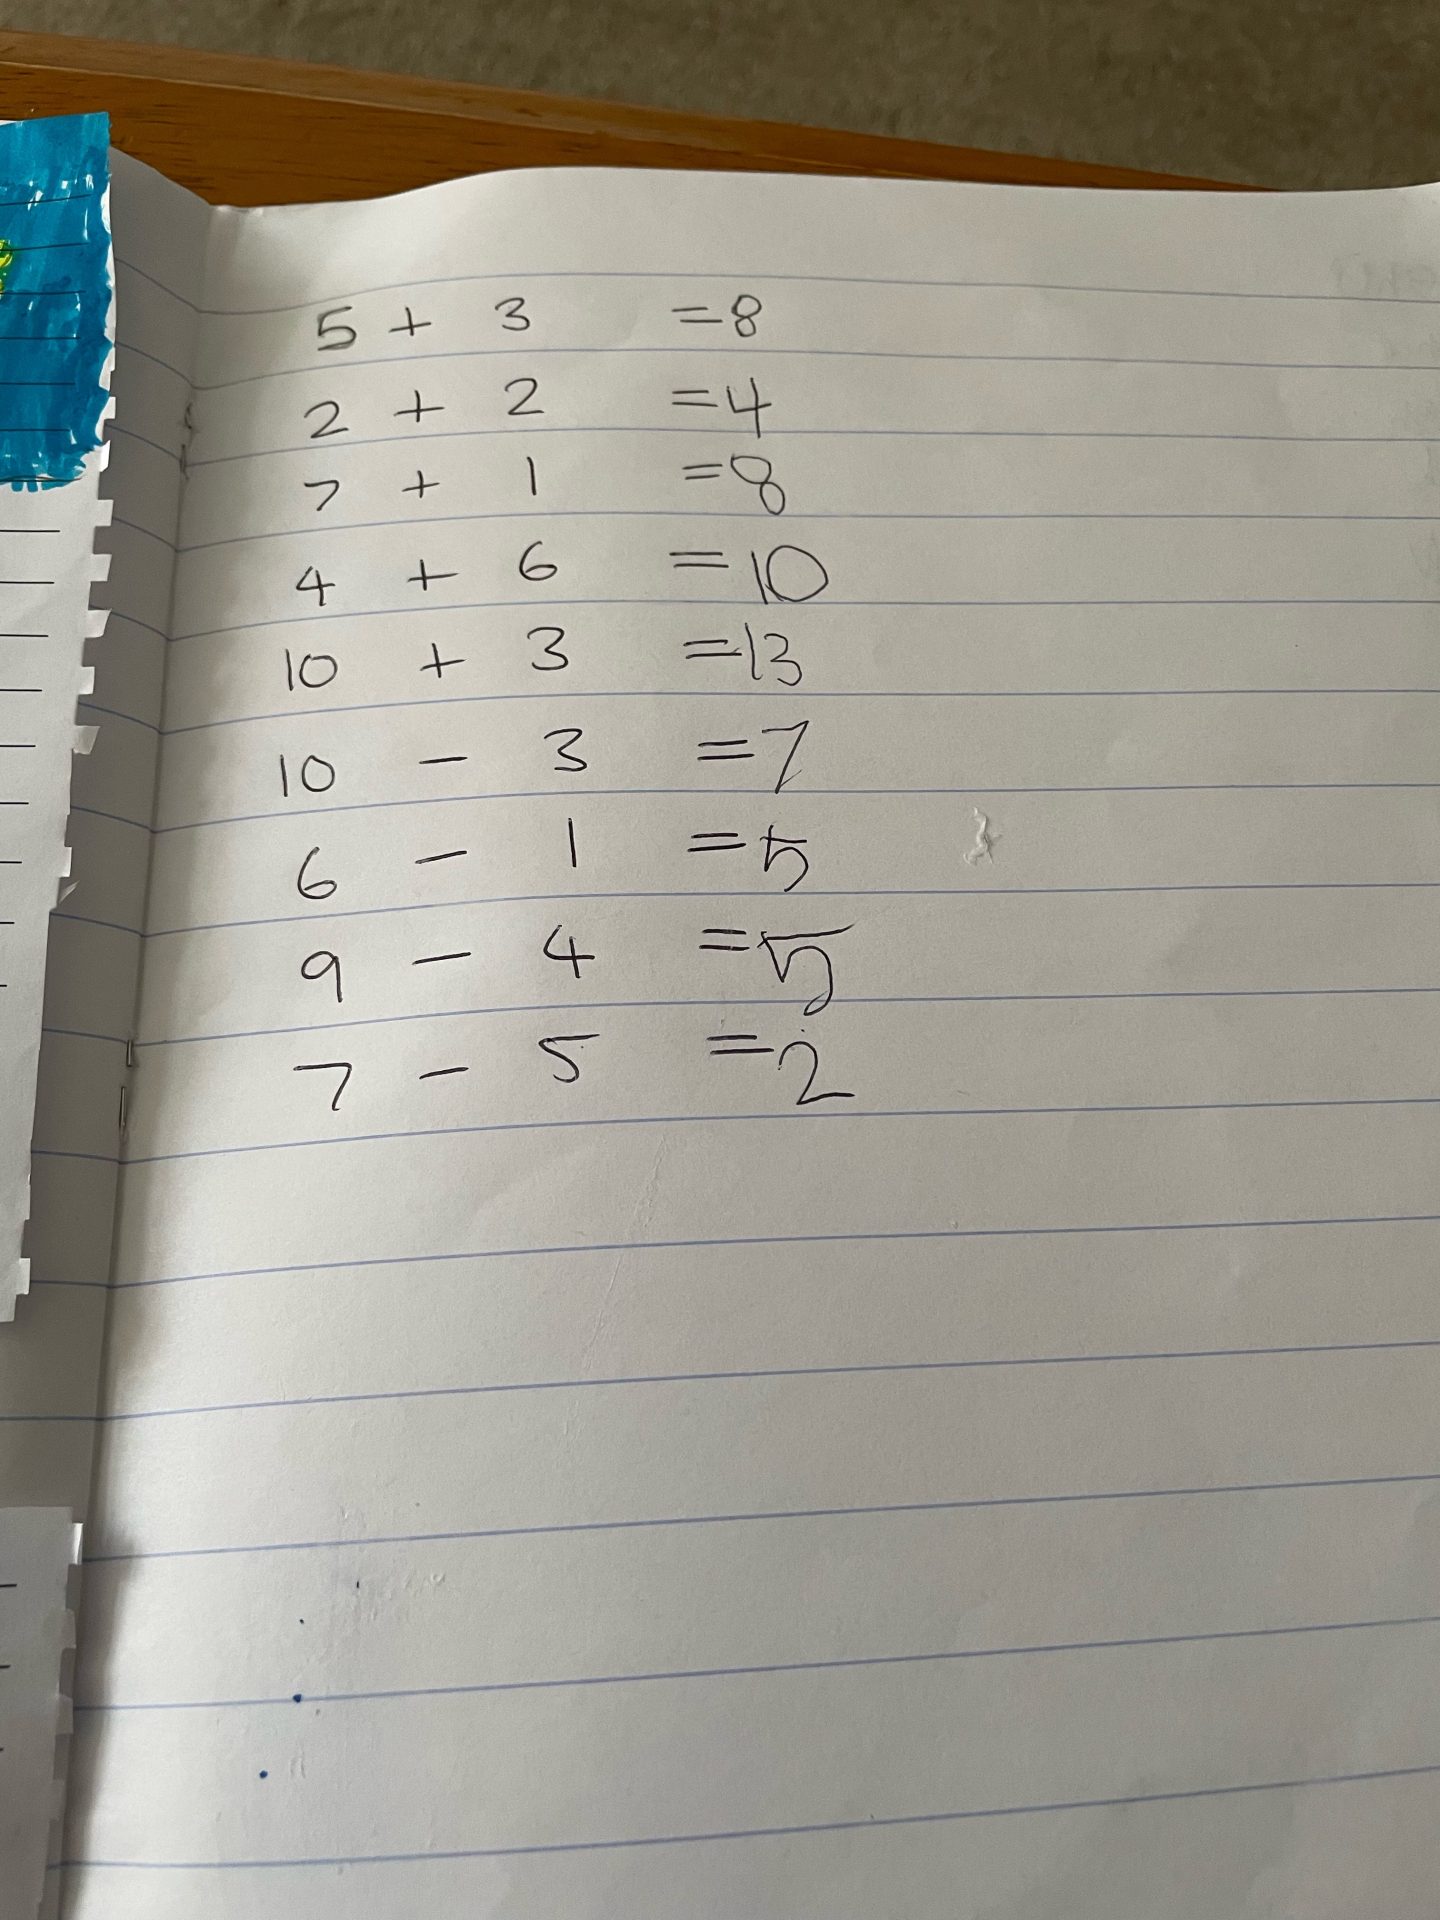 5 + 3 = 8
2 + 2 = 4
7 + 1 = 8
4 + 6 = 10
10 + 3 = 13
10 - 3 = 7
6 - 1 = 5
9 - 4 = 5
7 - 5 = 2